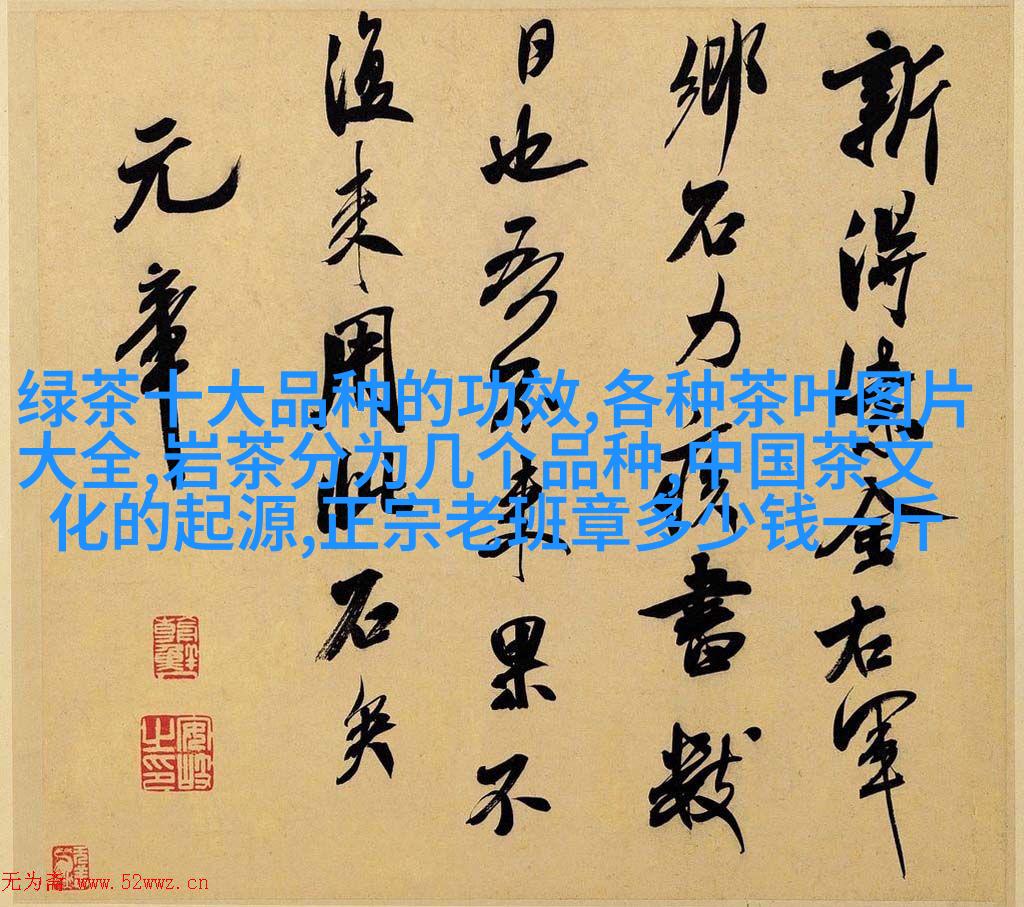 新得紫金右軍
鄉石力疾書數
日也吾果不
復來用此石矣
元章
绿茶十大品种的功效,各种茶叶图片
大全,岩茶分为几个品种,中国茶文
化的起源,正宗老班章多少钱一斤
安岐之印
无为斋 www.52wwz.cn